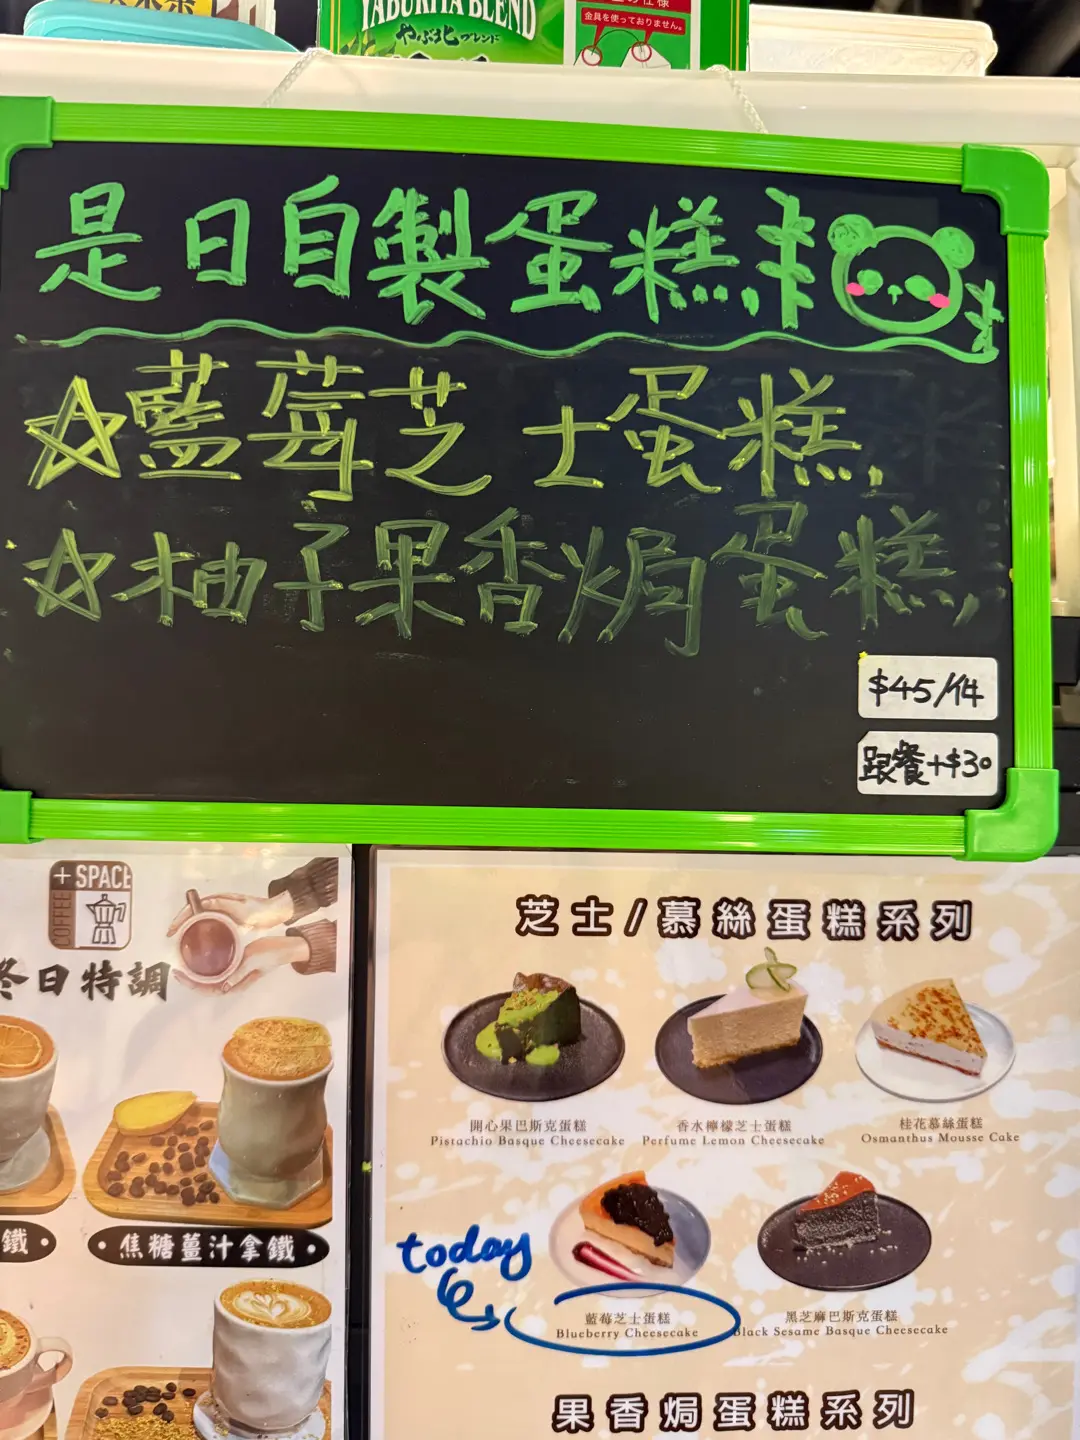 YABUKITA BLEND
やぶ北ブレンド
金具を使っておりません。
是日自製蛋糕
☆藍莓芝士蛋糕
☆柚子果香焗蛋糕
$45/件
跟餐+$30
+ SPACE
COFFEE
冬日特調
焦糖薑汁拿鐵
鐵
芝士/慕絲蛋糕系列
開心果巴斯克蛋糕
Pistachio Basque Cheesecake
香水檸檬芝士蛋糕
Perfume Lemon Cheesecake
桂花慕絲蛋糕
Osmanthus Mousse Cake
today
藍莓芝士蛋糕
Blueberry Cheesecake
黑芝麻巴斯克蛋糕
Black Sesame Basque Cheesecake
果香焗蛋糕系列